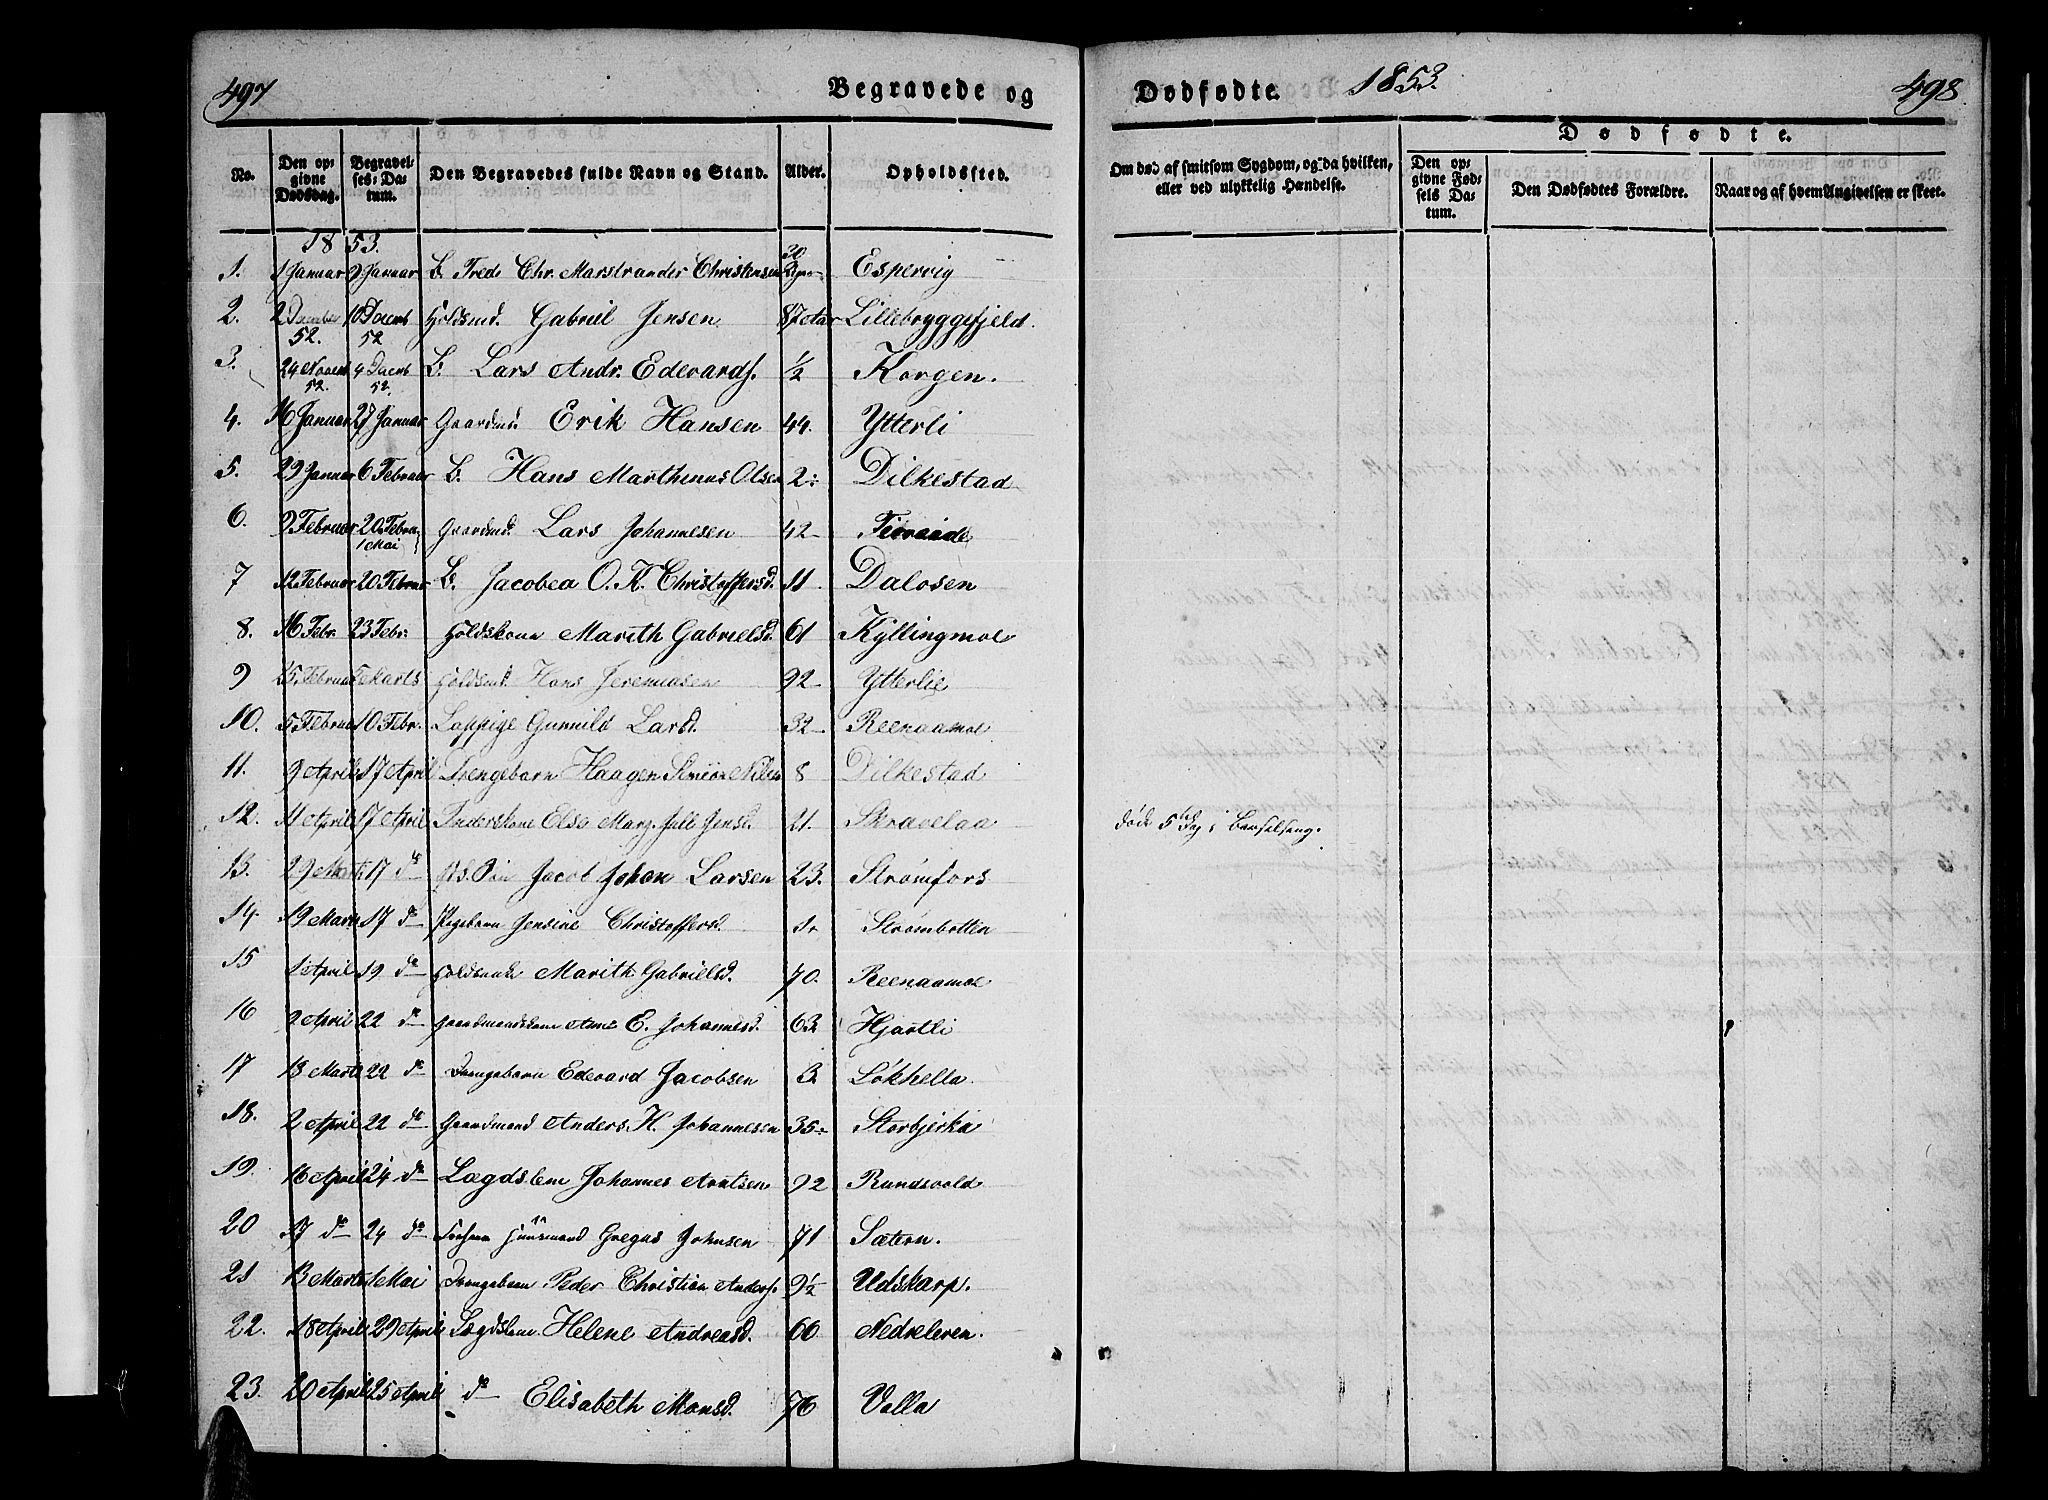 497
Begravede og
Dødfødte. 1853.
498
No.
Den opgivne Dødsdag.
Begravelses-Datum.
Den Begravedes fulde Navn og Stand.
Alder.
Opholdssted.
Om død af smitsom Sygdom, og da hvilken, eller ved ulykkelig Hændelse.
Dødfødte.
Den opgivne Fødsels Datum.
Den Dødfødtes Forældre.
Naar og af hvem Angivelsen er skeet.
1853.
1. 1 Januar 9 Januar B. Fred. Chr. Marstrander Christensen 30 Espervig
2. 2 December 52. 10 Decemb 52 Gabriel Jensen 87 Aar Lillebryggefjeld.
3. 24 Novemb 52. 4 Decemb 52. B. Lars Andr. Edevards. 1/2 Korgen.
4. 16 Januar 27 Januar Gaardmd. Erik Hansen 44. Ytterli
5. 29 Januar 6 Februar B. Hans Marthinus Olsen 2: Dilkestad
6. 9 Februar 20 Februar 1 Mai Gaardmd. Lars Johannesen 42
7 12 Februar 20 Februar B. Jacobea O. K. Christoffersd. 11 Dalosen
8. 16 Febr. 23 Febr. Marith Gabrielsd. 61 Kyllingmoe
9 25 Februar 5 Marts Hans Jeremiasen 92 Ytterlie
10. 5 Februar 10 Febr. Lappige Gunnild Larsd. 32 Reenaamoe
11. 9 April 17 April Drengebarn Haagen Simion Nilsen 8 Dilkestad
12. 11 April 17 April Inderskone Else Marg. Jensd. 21. Skravelaa døde 5te Dag i Barselseng.
13. 29 Marts 17 do Jacob Johan Larsen 23. Strømfors
14. 19 Marts 17 do Pigebarn Jensine Christoffersd. 1. Strømbotten
15 1 April 19 do Marith Gabrielsd. 70. Reenaamoe
16 9 April 22 do Gaardmandskone Anne E. Johannesd. 63 Hjartli
17 18 Marts 22 do Drengebarn Edevard Jacobsen 3 Løkhella.
18. 2 April 22 do Gaardmand Anders H. Johannesen 35: Storbjerka
19. 16 April 24 do Lægdslem Johannes Arntsen 92 Rundsvold
20 17 do 24 do Huusmand Gregus Johnsen 71 Sætern.
21 13 Marts 1 Mai Drengebarn Peder Christian Anders. 9 1/2 Udskarp.
22. 18 April 29 April Lægdslem Helene Andreasd. 66 Nedreleren.
23. 20 April 25 April do Elisabeth Monsd. 76 Valla